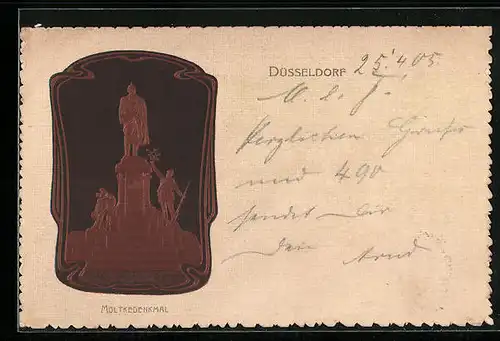 DÜSSELDORF 25.4.05.
M. l. J.
Herzlichen Gruss
und 490
sendet Dir
Dein Arno
MOLTKEDENKMAL